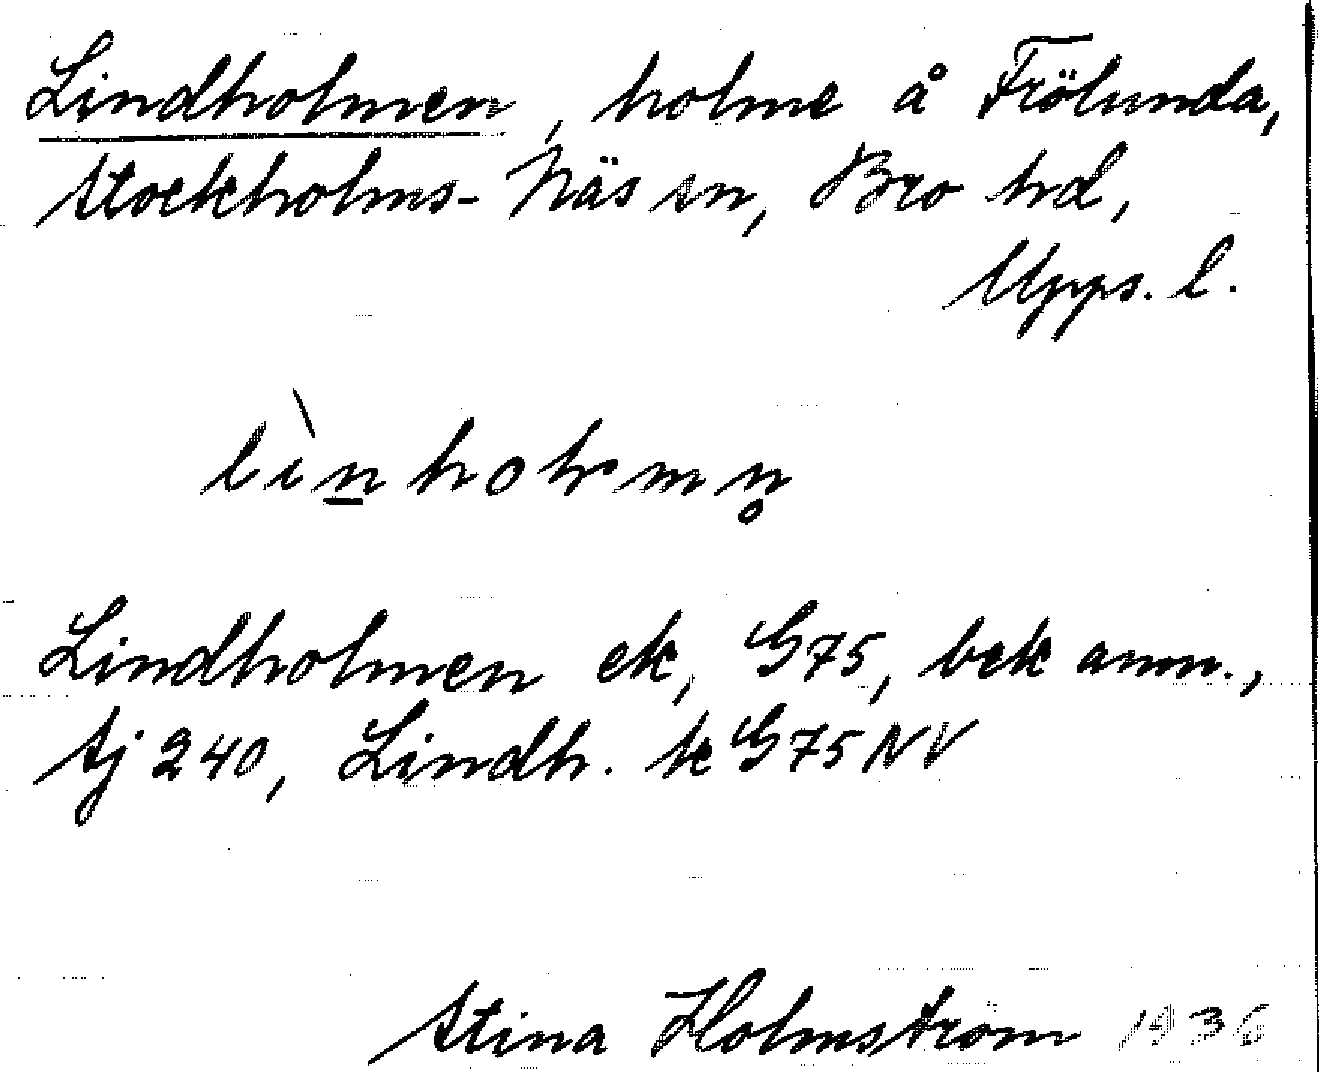 Lindholmen, holme å Frölunda,
Stockholms-Näs sn, Bro hd,
Upps. l.
lìn̲holmn̥
Lindholmen ek, G75, bek anm.,
Aj 240, Lindh. te G75NV
Stina Holmström 1936